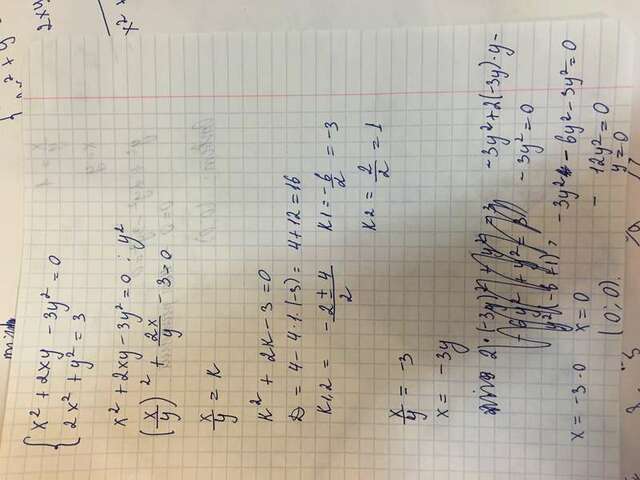 x² + 2xy - 3y² = 0
2x² + y² = 3
x² + 2xy - 3y² = 0 : y²
(x/y)² + 2x/y - 3 = 0
x/y = k
k² + 2k - 3 = 0
D = 4 - 4·1·(-3) = 4 + 12 = 16
k1,2 = -2 ± 4/2 k1 = -6/2 = -3
k2 = 2/2 = 1
x/y = -3
x = -3y
2·(-3y)² + y² = 3 -3y² + 2(-3y)·y -
-6y² + y² = 3 -3y² = 0
-3y² - 6y² - 3y² = 0
x = -3·0 x = 0 - 12y² = 0
(0; 0). y = 0